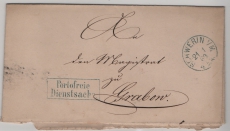 An
den Magistrat
zu
Grabow.
Portofreie
Dienstsache
SCHWERIN I/M.